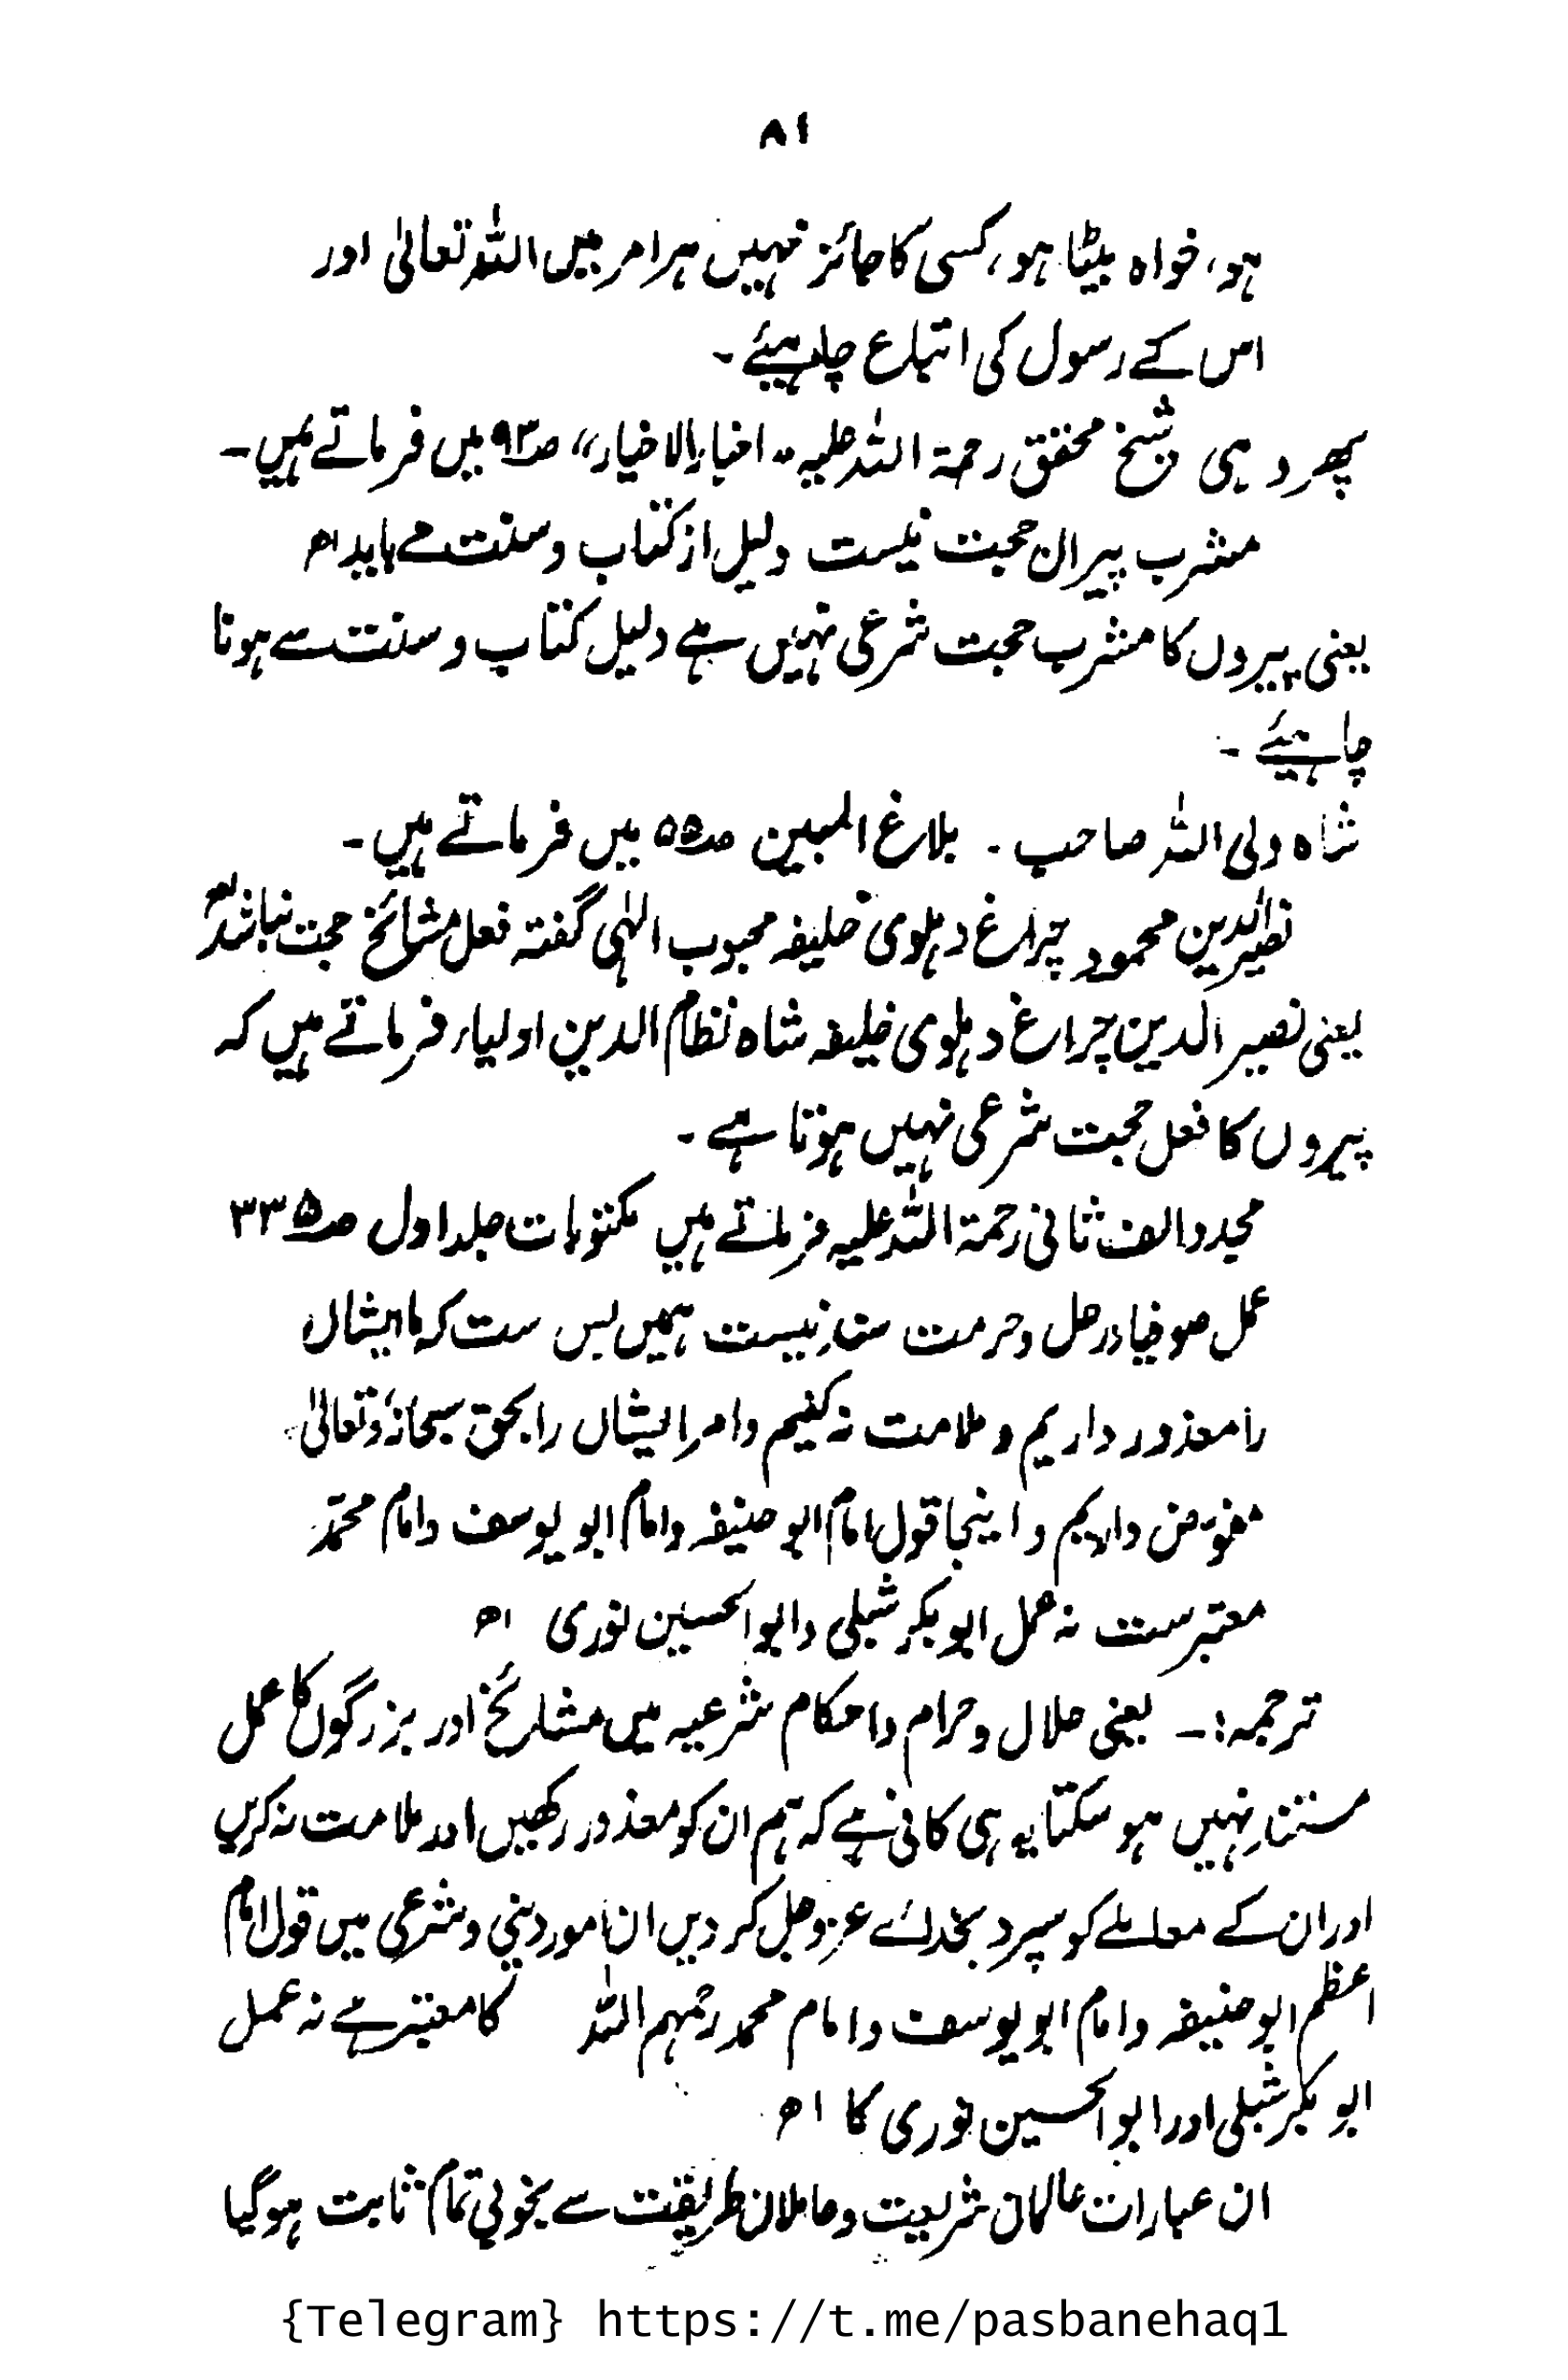 ۸۱
ہو، خواہ بیٹا ہو، کسی کا جائز نہیں ہر امر میں اللہ تعالیٰ اور
اس کے رسول کی اتباع چاہیئے ۔
پھر وہی شیخ محقق رحمۃ اللہ علیہ ،، اخبار الاخیار،، صـ۹۳ میں فرماتے ہیں ۔
مشرب پیران حجت نیست دلیل از کتاب و سنت مے باید اھ
یعنی پیروں کا مشرب حجت شرعی نہیں ہے دلیل کتاب و سنت سے ہونا
چاہیئے ۔
شاہ ولی اللہ صاحب ۔ بلاغ المبین صـ۵۵ میں فرماتے ہیں ۔
نصیر الدین محمود چراغ دہلوی خلیفہ محبوب الٰہی گفتہ فعل مشائخ حجت نباشد اھ
یعنی نصیر الدین چراغ دہلوی خلیفہ شاہ نظام الدین اولیاء فرماتے ہیں کہ
پیروں کا فعل حجت شرعی نہیں ہوتا ہے ۔
مجدد الف ثانی رحمۃ اللہ علیہ فرماتے ہیں مکتوبات جلد اول صـ۳۳۵
عمل صوفیا در حل و حرمت سند نیست ہمیں بس ست کہ ما ایشاں
را معذور داریم و ملامت نہ کنیم و امر ایشاں را بحق سبحانہٗ و تعالیٰ
مفوّض داریم و اینجا قول امام ابو حنیفہ و امام ابو یوسف و امام محمدؒ
معتبر ست نہ عمل ابوبکر شبلی و ابو الحسین نوری اھ
ترجمہ :۔ یعنی حلال و حرام و احکام شرعیہ میں مشائخ اور بزرگوں کا عمل
مستند نہیں ہو سکتا یہ ہی کافی ہے کہ ہم ان کو معذور رکھیں اور ملامت نہ کریں
اور ان کے معاملے کو سپرد بخدائے عزوجل کر دیں ان امور دینی و شرعی میں قول امام
اعظم ابو حنیفہ و امام ابو یوسف و امام محمد رحمہم اللہ کا معتبر ہے نہ عمل
ابوبکر شبلی اور ابو الحسین نوری کا اھ
ان عبارات عالمان شریعت و عاملان طریقت سے بخوبی تمام ثابت ہو گیا
{Telegram} https://t.me/pasbanehaq1